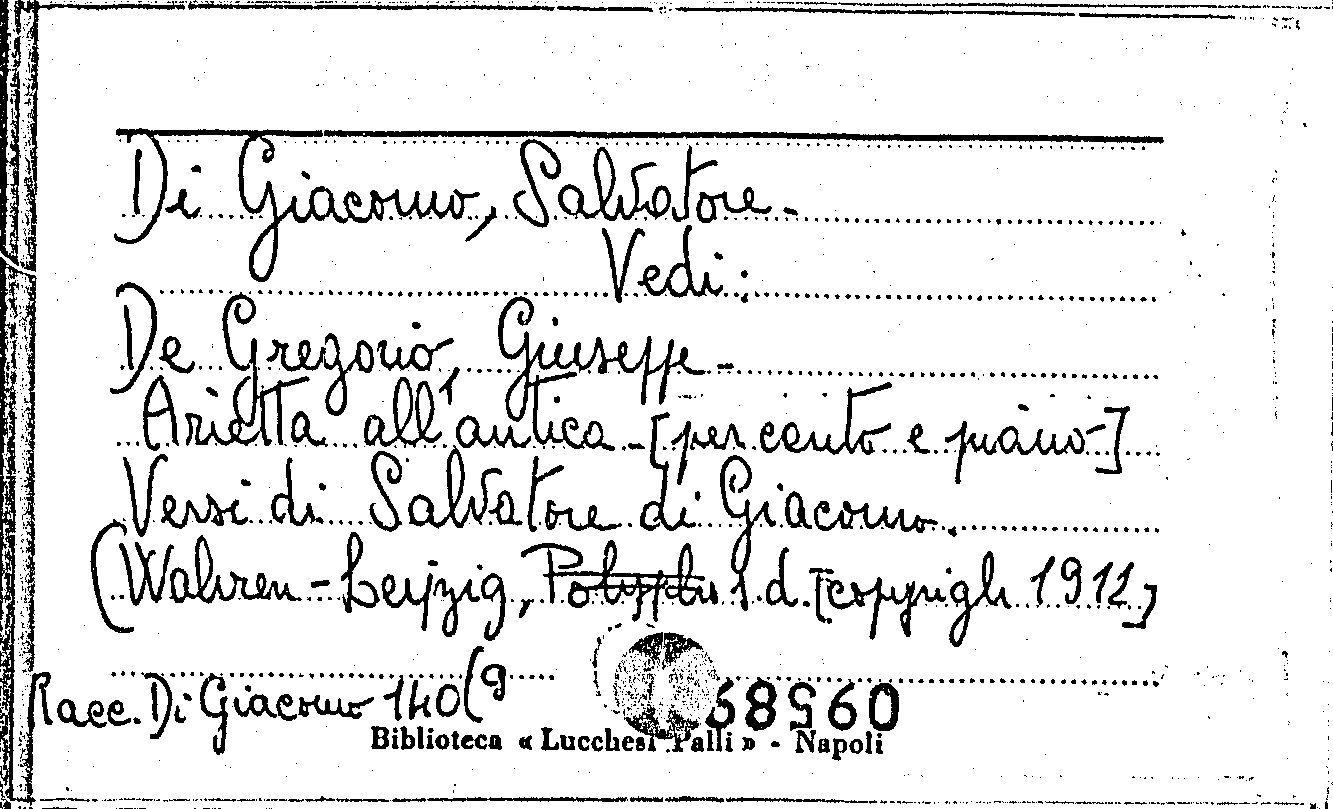 Di Giacomo, Salvatore -
Vedi:
De Gregorio, Giuseppe -
Arietta all'antica - [per canto e piano-]
Versi di Salvatore di Giacomo.
(Wahren - Leipzig, s. d. [copyrigh 1912]
Racc. Di Giacomo 140(9
Biblioteca « Lucchesi Palli » - Napoli